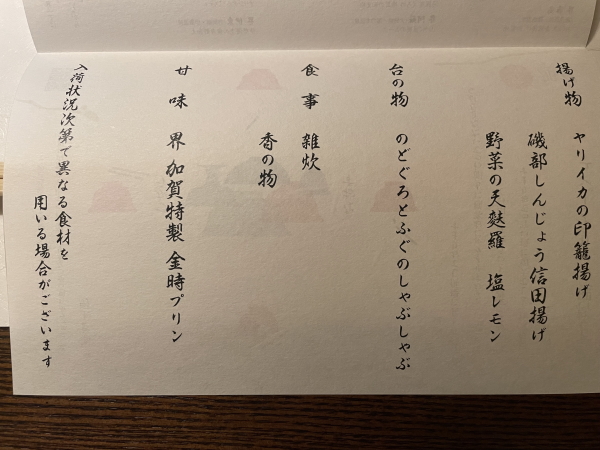 揚げ物　ヤリイカの印籠揚げ
磯部しんじょう信田揚げ
野菜の天麩羅　塩レモン
台の物　のどぐろとふぐのしゃぶしゃぶ
食事　雑炊
香の物
甘味　界　加賀特製　金時プリン
入荷状況次第で異なる食材を
用いる場合がございます